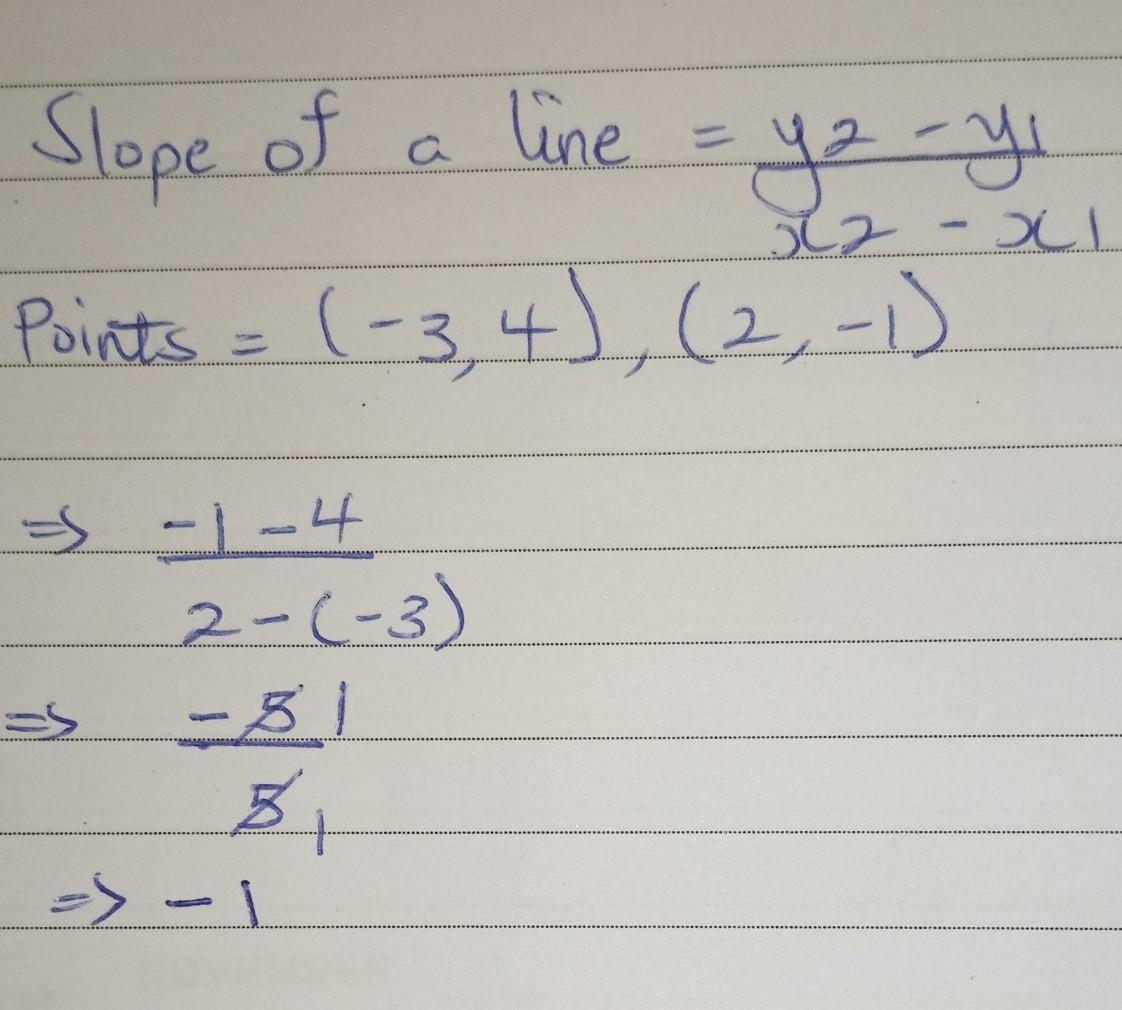 Slope of a line = y2 - y1
x2 - x1
Points = (-3, 4), (2, -1)
=> -1 - 4
2 - (-3)
=> -5 1
5 1
=> -1